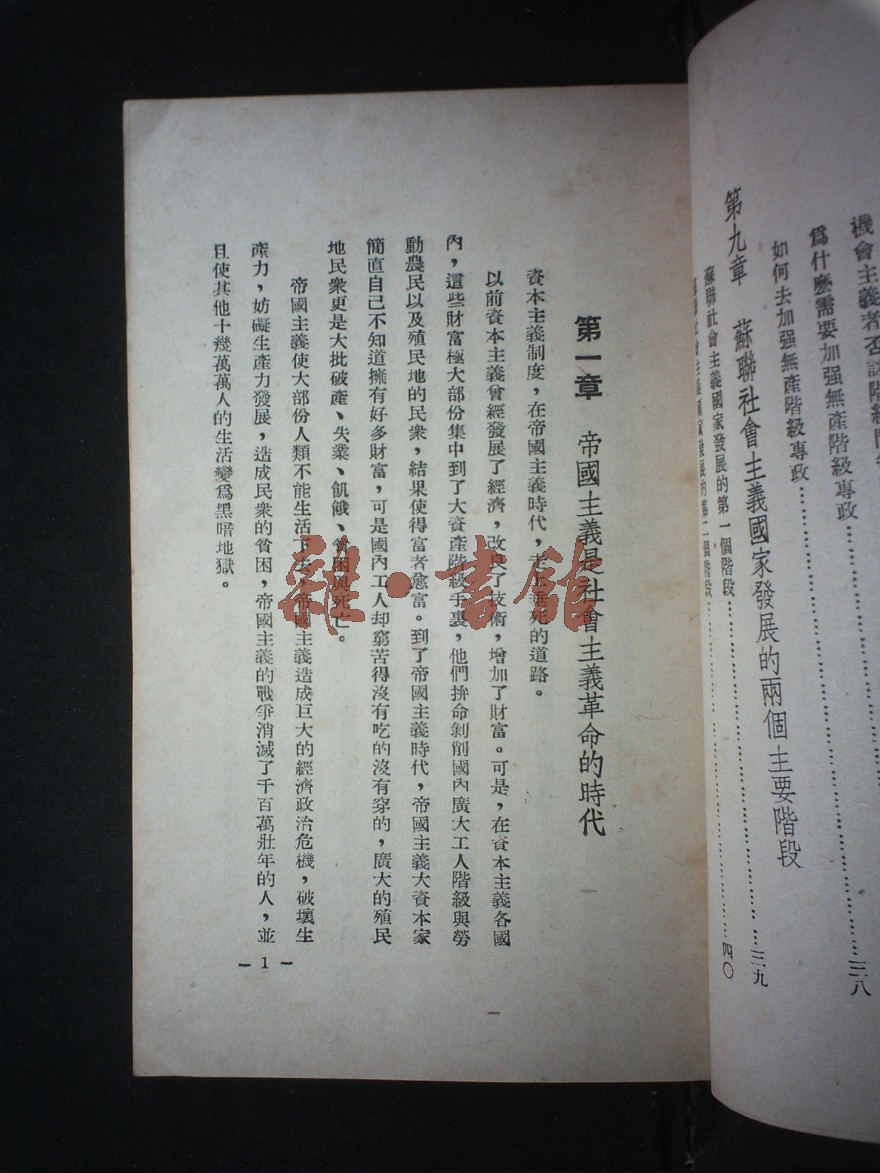 機會主義者否認階級鬥爭
爲什麽需要加强無產階級專政…………三八
如何去加强無產階級專政…………
第九章 蘇聯社會主義國家發展的兩個主要階段
蘇聯社會主義國家發展的第一個階段…………三九
蘇聯社會主義國家發展的第二個階段…………四〇
第一章 帝國主義是社會主義革命的時代
資本主義制度，在帝國主義時代，走上垂死的道路。
以前資本主義曾經發展了經濟，改良了技術，增加了財富。可是，在資本主義各國
內，這些財富極大部份集中到了大資產階級手裏，他們拚命剝削國內廣大工人階級與勞
動農民以及殖民地的民衆，結果使得富者愈富。到了帝國主義時代，帝國主義大資本家
簡直自己不知道擁有好多財富，可是國內工人却窮苦得沒有吃的沒有穿的，廣大的殖民
地民衆更是大批破產、失業、飢餓、貧困與死亡。
帝國主義使大部份人類不能生活下去，帝國主義造成巨大的經濟政治危機，破壞生
產力，妨礙生產力發展，造成民衆的貧困，帝國主義的戰爭消滅了千百萬壯年的人，並
且使其他十幾萬萬人的生活變爲黑暗地獄。
— 1 —
雜·書館